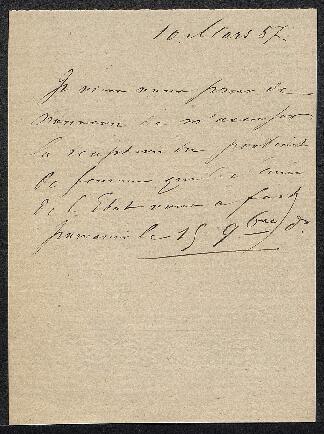 10 Mars 57.
Je viens vous prier de
nouveau de m'accuser
la réception du portrait
de femme que
de l'Etat vous a fait
parvenir le 15 9bre dr